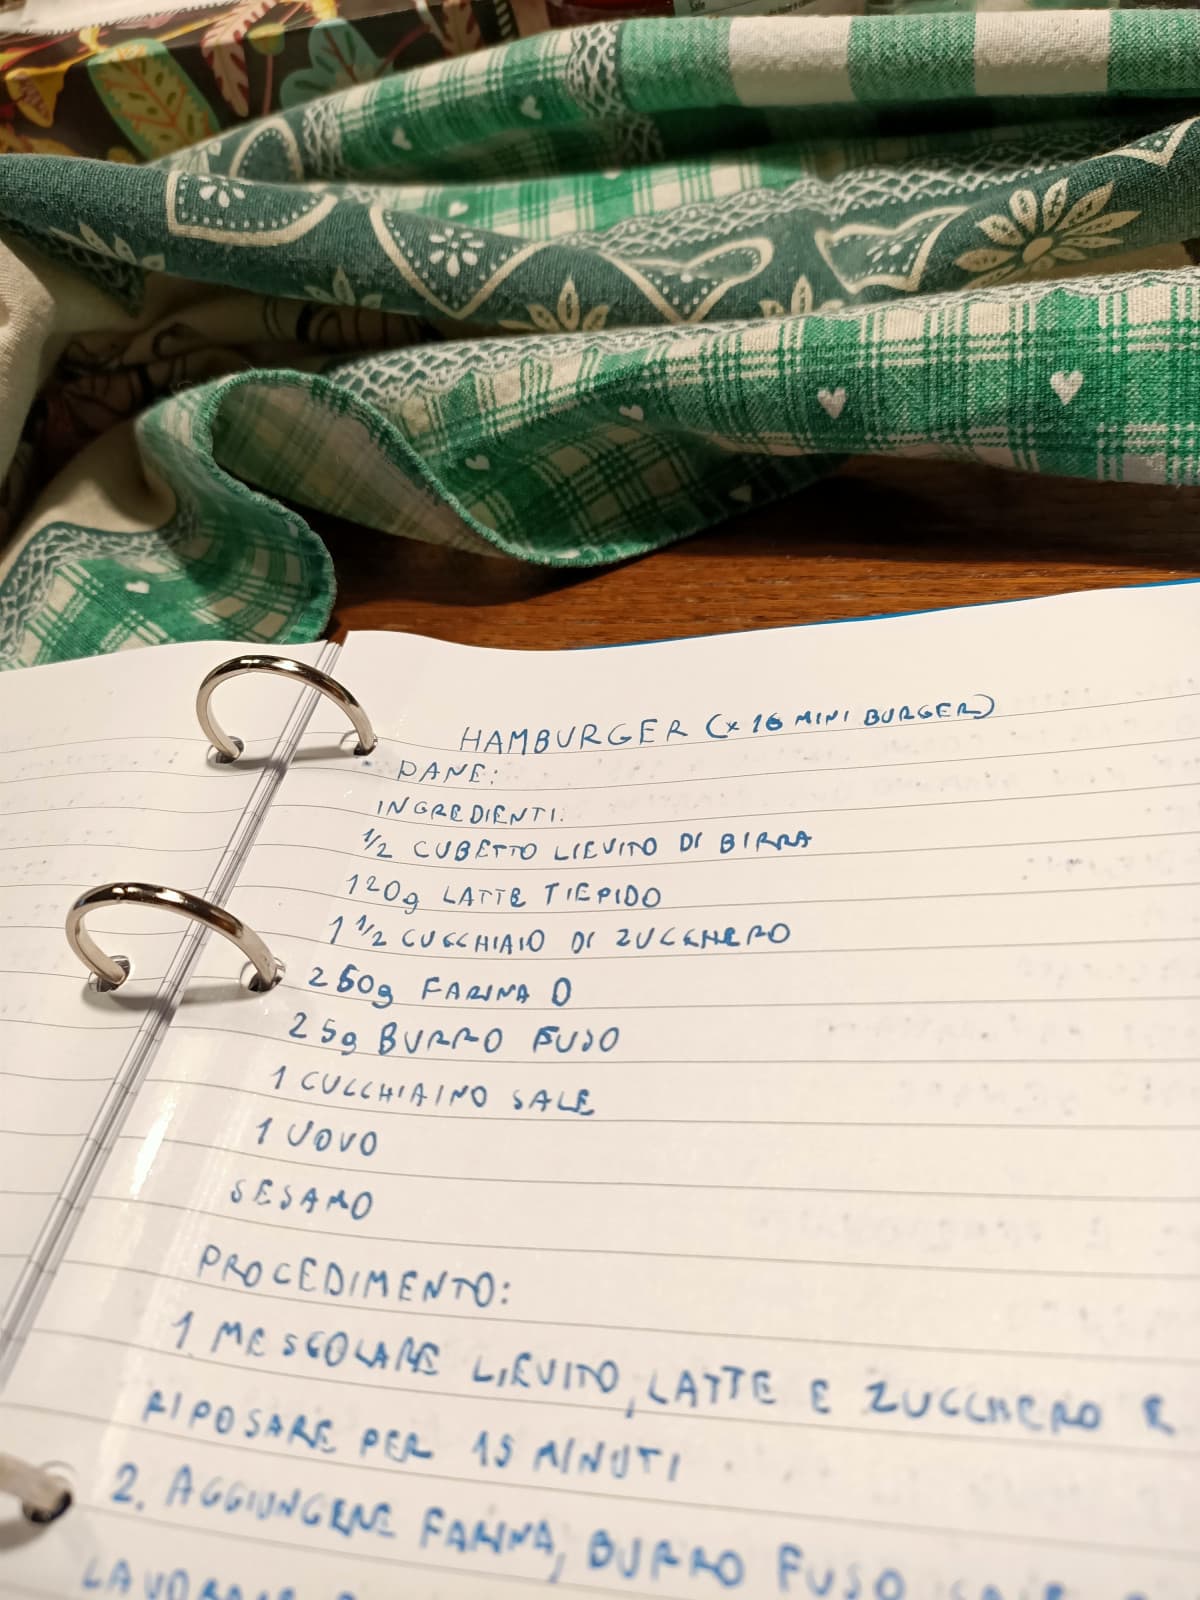 Sale
HAMBURGER (x 16 MINI BURGER)
PANE:
INGREDIENTI:
1/2 CUBETTO LIEVITO DI BIRRA
120g LATTE TIEPIDO
1 1/2 CUCCHIAIO DI ZUCCHERO
250g FARINA 0
25g BURRO FUSO
1 CUCCHIAINO SALE
1 UOVO
SESAMO
PROCEDIMENTO:
1 MESCOLARE LIEVITO, LATTE E ZUCCHERO E
RIPOSARE PER 15 MINUTI
2. AGGIUNGERE FARINA, BURRO FUSO SALE